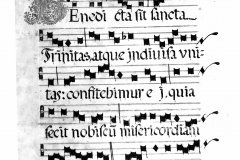 Benedicta sit sancta
Trinitas, atque indivisa vni-
tas: confitebimur ei, quia
fecit nobiscu misericordiam